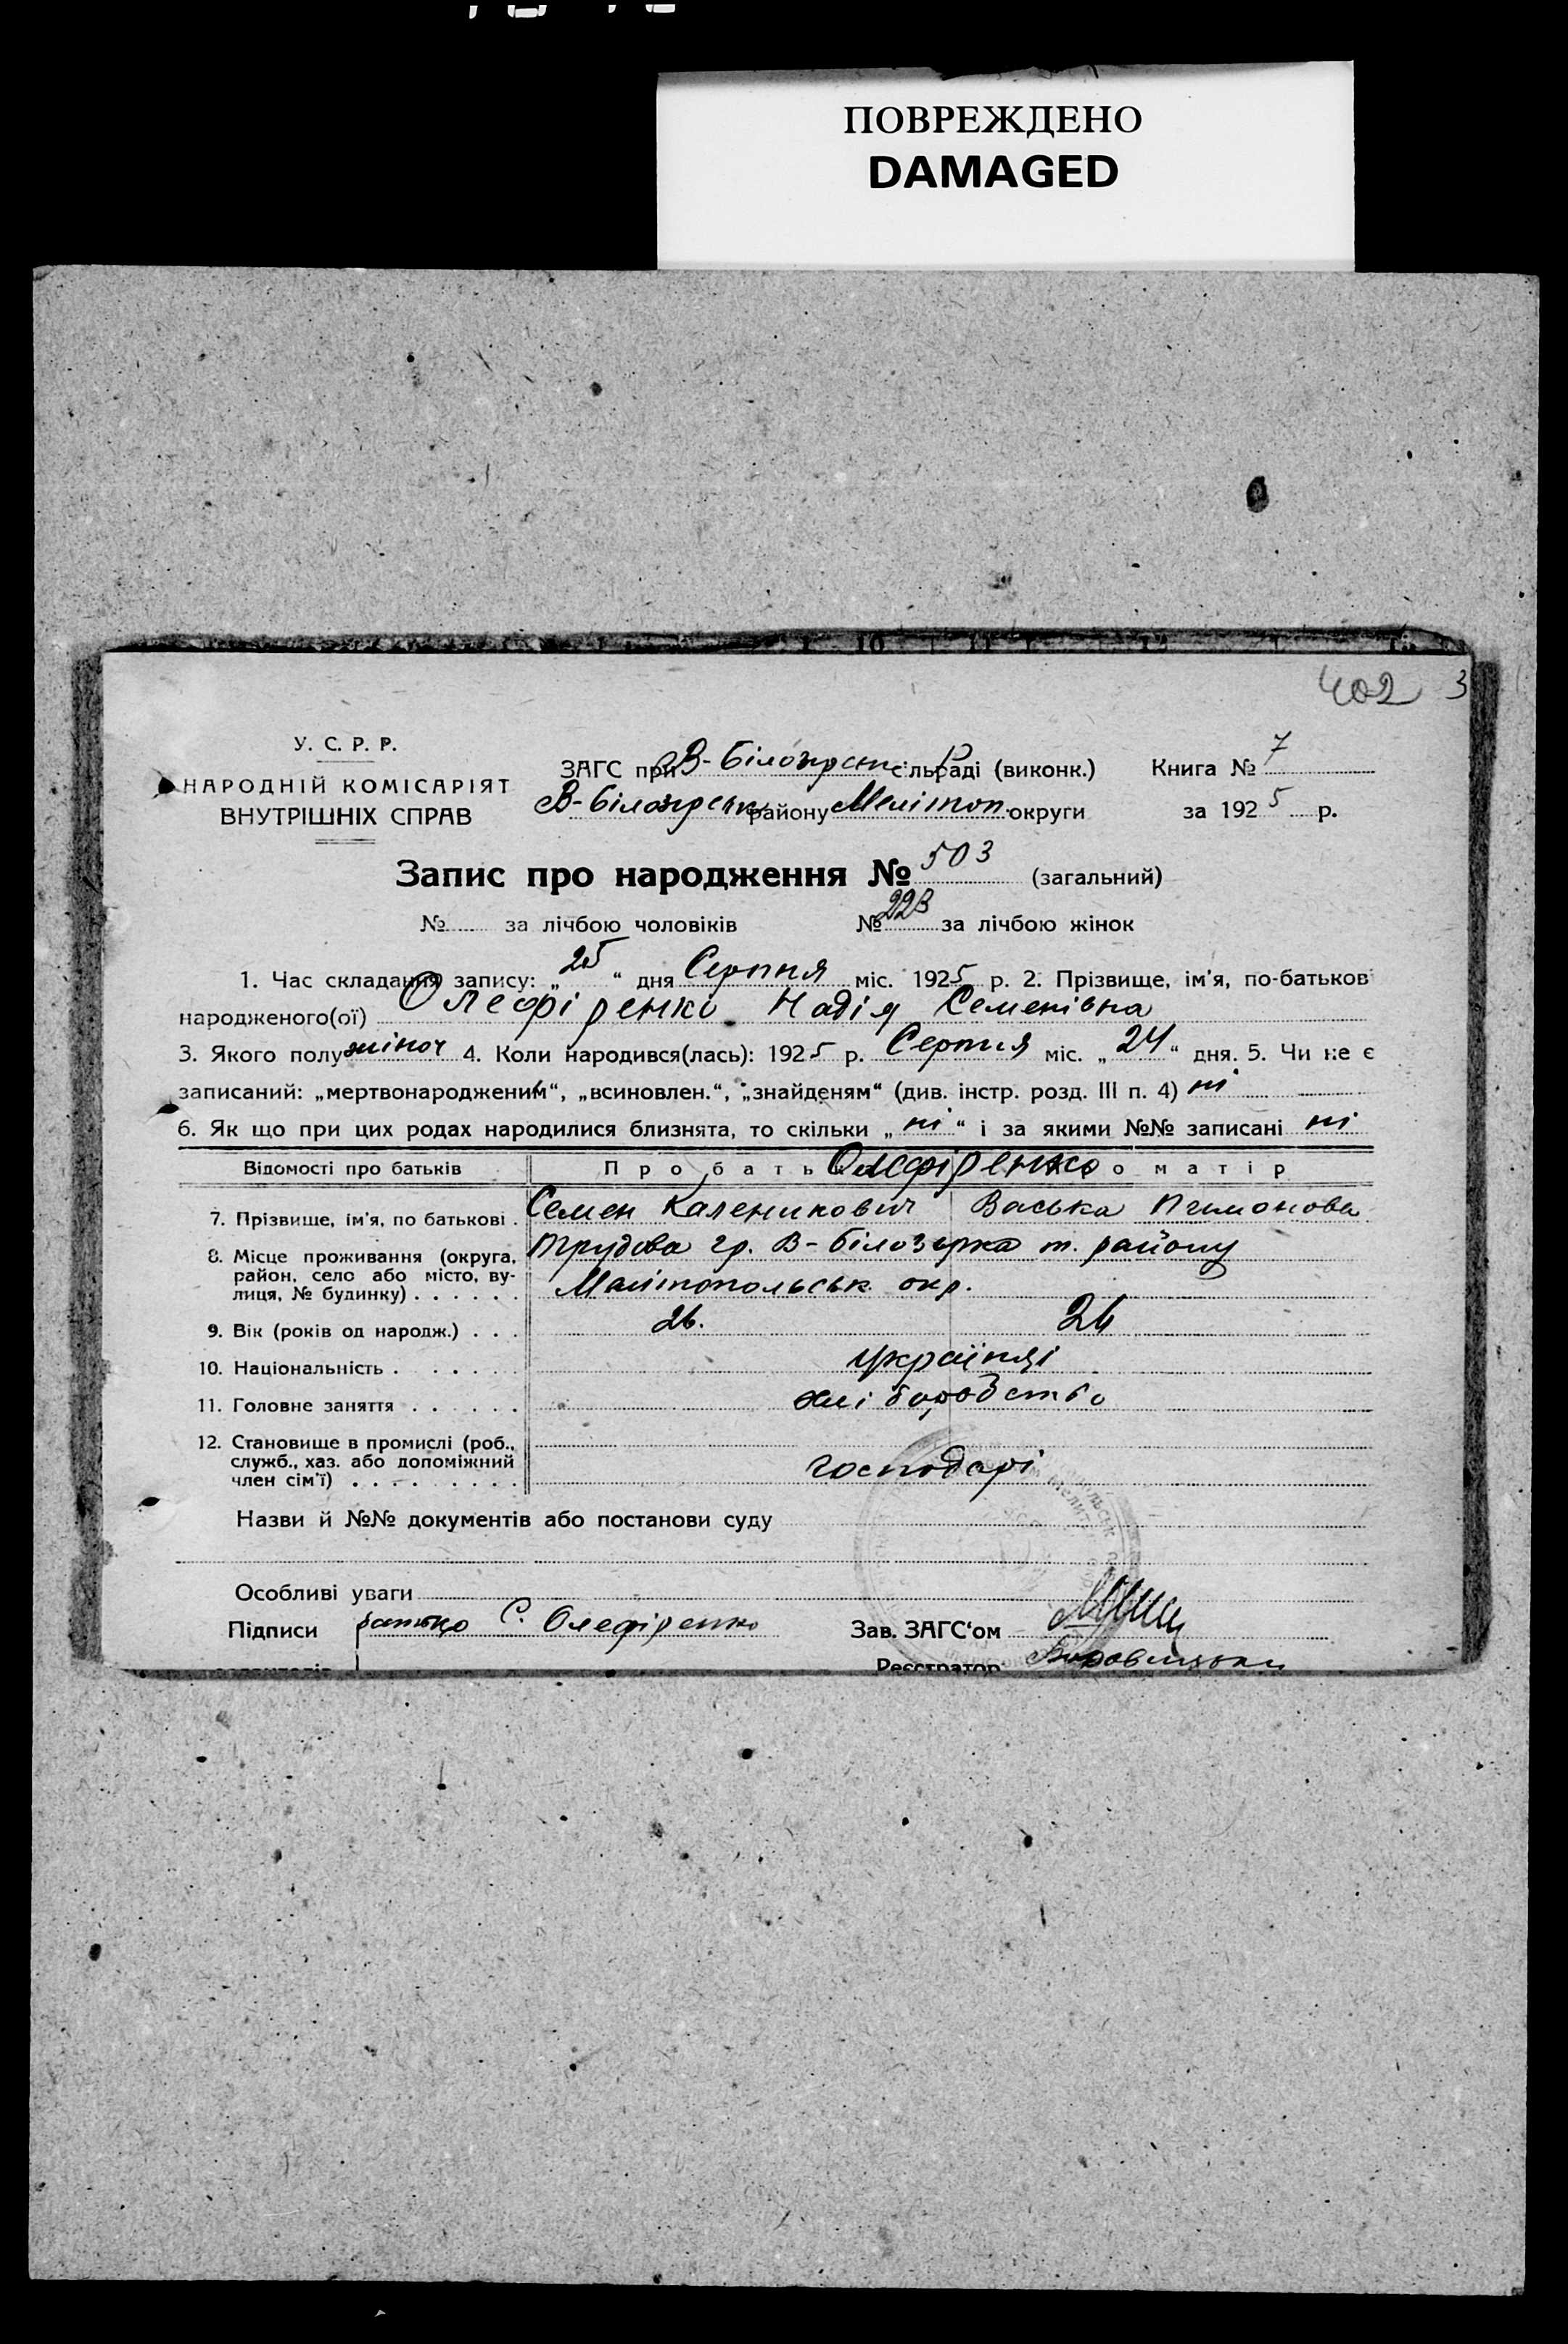 ПОВРЕЖДЕНО
DAMAGED
402 3
У. С. Р. Р.
НАРОДНІЙ КОМІСАРІЯТ
ВНУТРІШНІХ СПРАВ
ЗАГС при В-Білозірськ сільраді (виконк.) Книга № 7
В-Білозірськ району Мелітоп. округи за 1925 р.
Запис про народження № 503 (загальний)
№ за лічбою чоловіків № 223 за лічбою жінок
1. Час складання запису: „25“ дня Серпня міс. 1925 р. 2. Прізвище, ім'я, по-батьков
народженого(ої) Олефіренко Надія Семенівна
3. Якого полу жіноч 4. Коли народився(лась): 1925 р. Серпня міс. „24“ дня. 5. Чи не є
записаний: „мертвонародженим“, „всиновлен.“, „знайденям“ (див. інстр. розд. III п. 4) ні
6. Як що при цих родах народилися близнята, то скільки „ні“ і за якими №№ записані ні
Відомості про батьків Про бать Олефіренко о матір
7. Прізвище, ім'я, по батькові . Семен Каленикович Васька Пимонова
8. Місце проживання (округа, Трудова гр. В-Білозірка т. району
район, село або місто, ву-
лиця, № будинку) . . . . . . Меліпопольськ окр.
9. Вік (років од народж.) . . . 26. 26
10. Національність . . . . . . українці
11. Головне заняття . . . . . . хліборобство
12. Становище в промислі (роб.,
служб., хаз. або допоміжний господарі
член сім'ї) . . . . . . . . .
Назви й №№ документів або постанови суду
Особливі уваги
Підписи батько С. Олефіренко Зав. ЗАГС'ом
Реєстратор